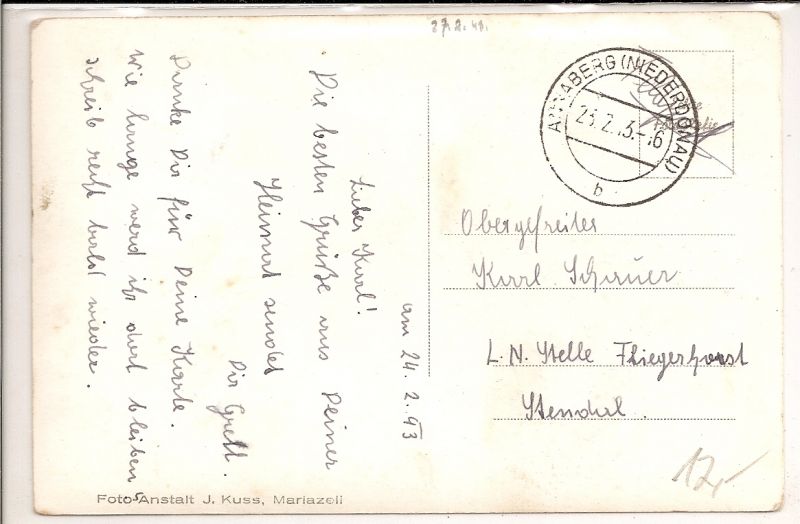 27.2.43.
ANNABERG (NIEDERDONAU)
23.2.43.-16
b
am 24.2.43
Lieber Karl!
Die besten Grüße aus Deiner
Heimat sendet
Dir Gretl.
Danke Dir für Deine Karte.
Wie lange werd ihr dort bleiben
schreib recht bald wieder.
Obergefreiter
Karl Schauer
L.N. Stelle Fliegerhorst
Stendal.
12,-
Foto-Anstalt J. Kuss, Mariazell